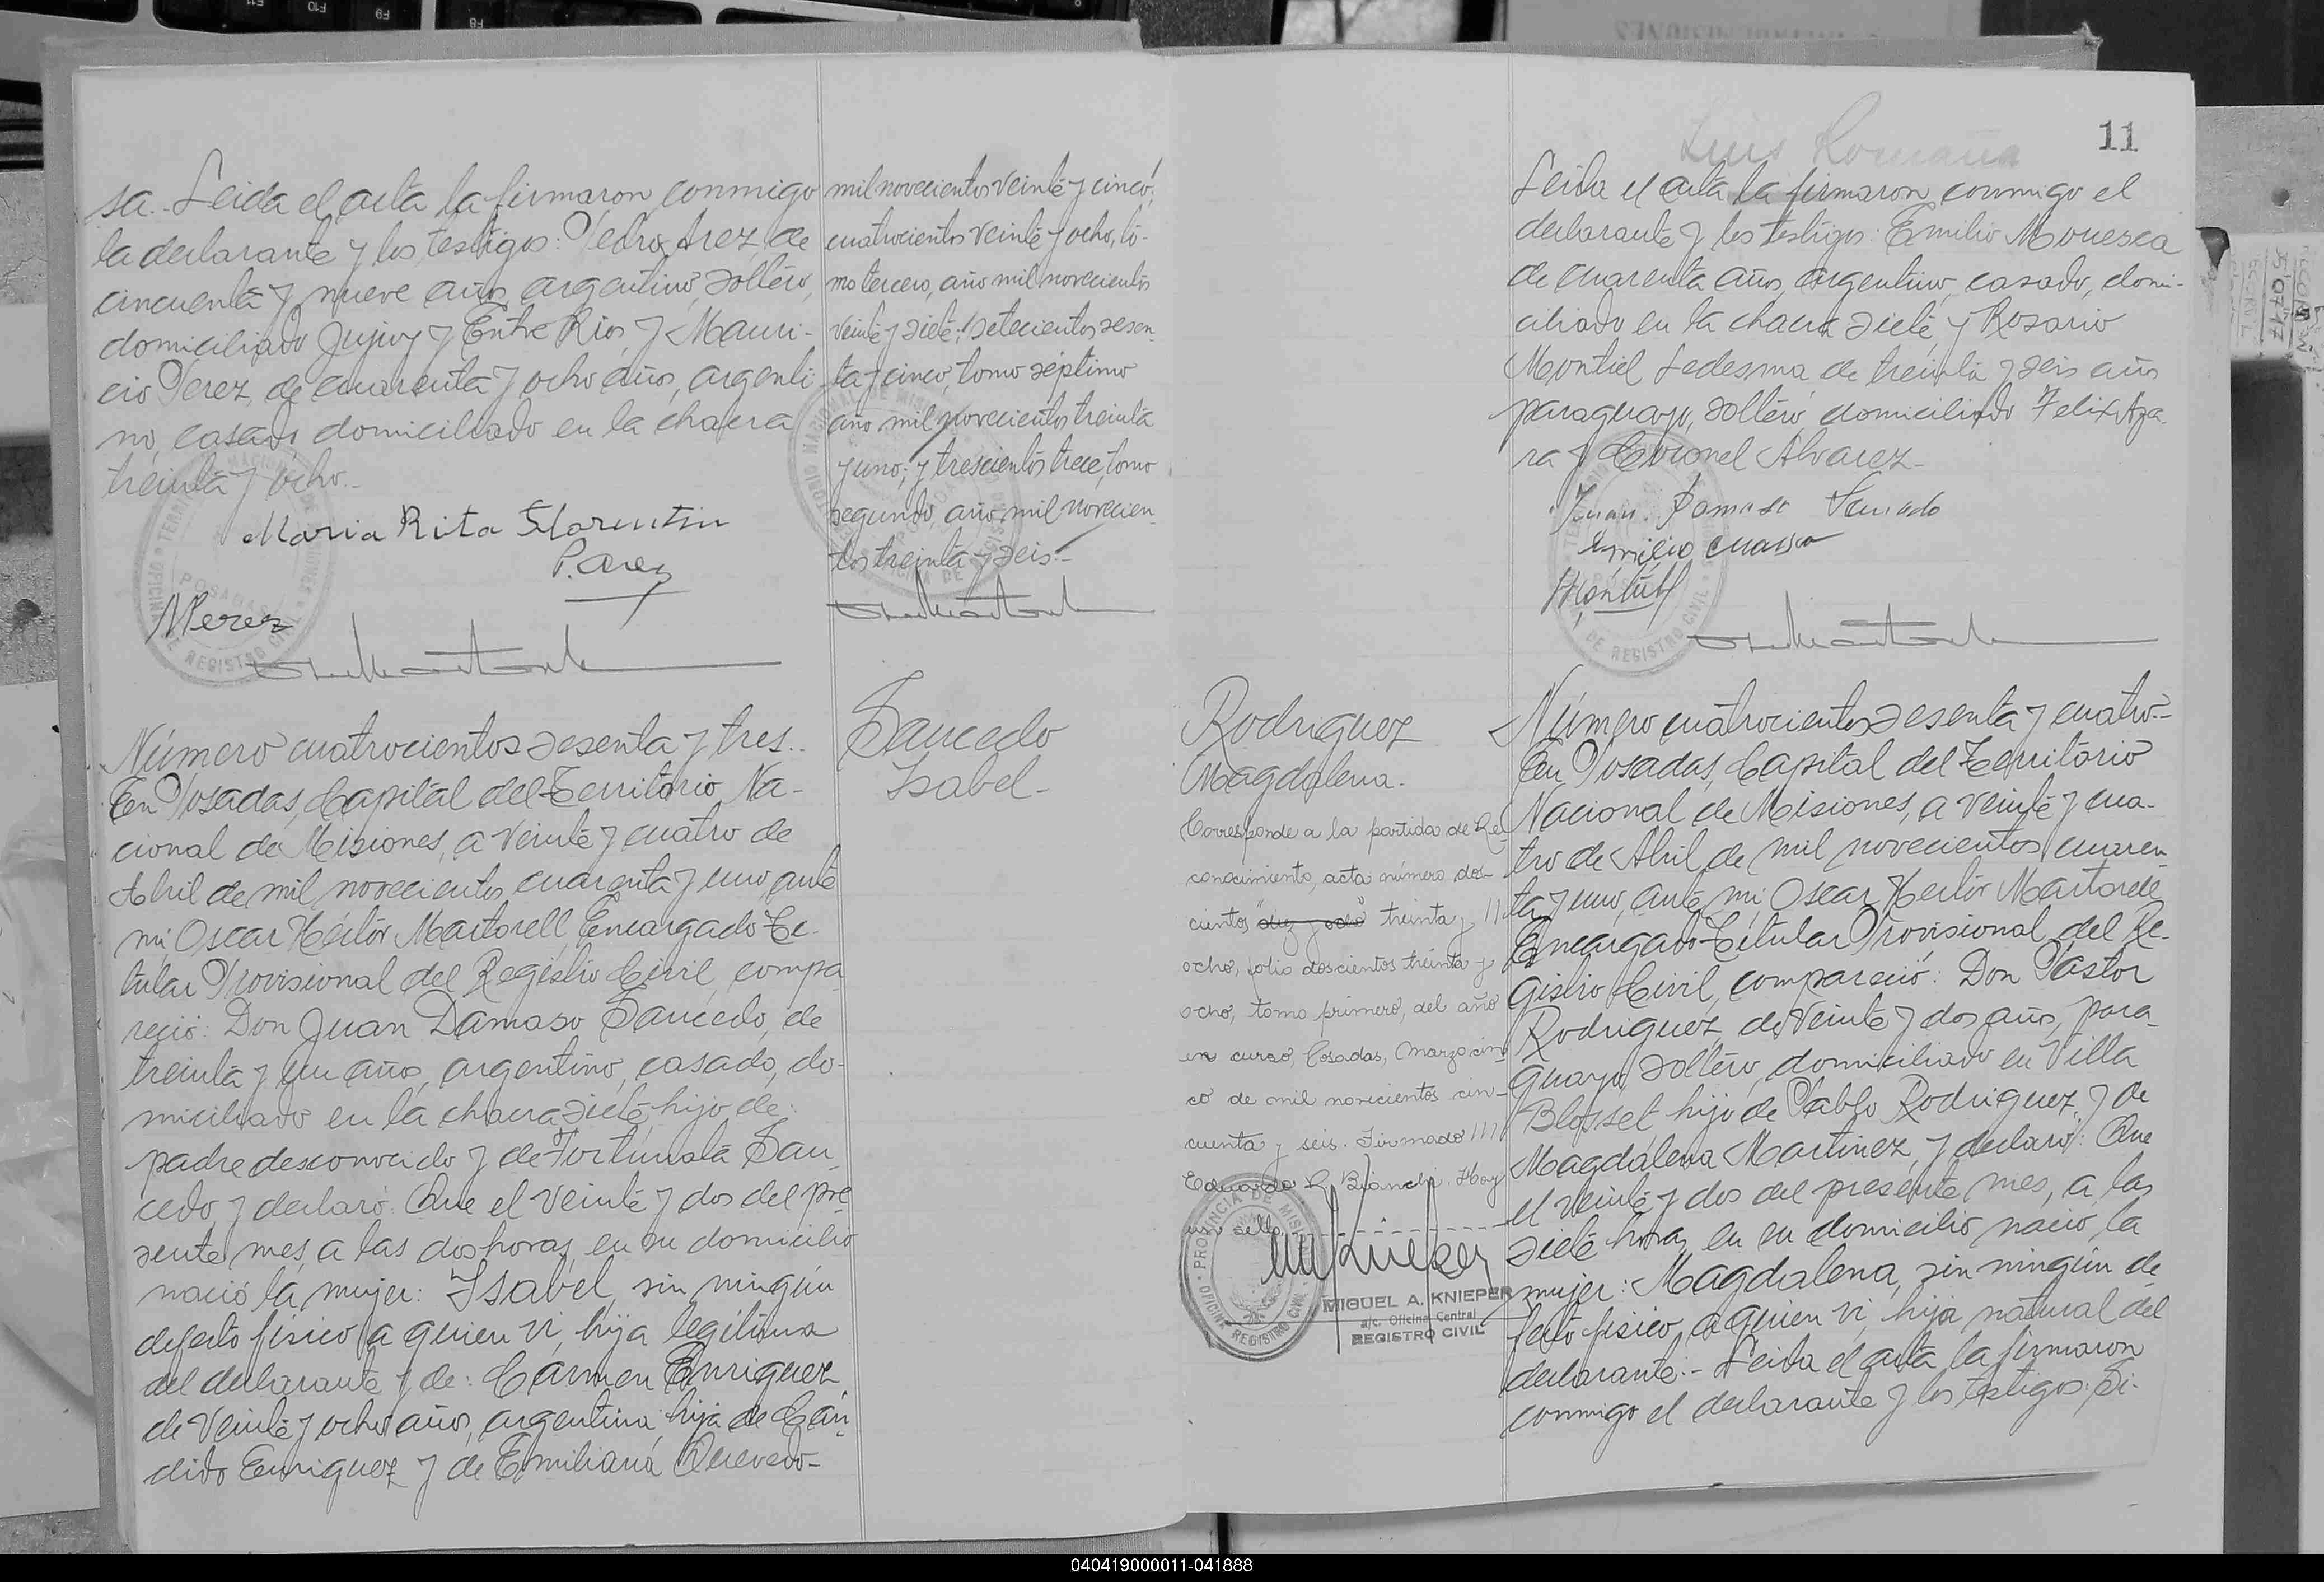 sa.- Leida el acta la firmaron conmigo
la declarante y los testigos: Pedro Arez, de
cincuenta y nueve años, argentino, soltero,
domiciliado Jujuy y Entre Rios, y Mauri-
cio Perez, de cuarenta y ocho años, argenti-
no, casado, domiciliado en la chacra
treinta y ocho.-
Maria Rita Florentin
P. Arez
MPerez
mil novecientos veinte y cinco;
cuatrocientos veinte y ocho, to-
mo tercero, año mil novecientos
veinte y siete; setecientos sesen-
ta y cinco, tomo séptimo
año mil novecientos treinta
y uno; y trescientos trece, tomo
segundo, año mil novecien-
tos treinta y seis.-
Número cuatrocientos sesenta y tres.-
En Posadas, Capital del Territorio Na-
cional de Misiones, a veinte y cuatro de
Abril de mil novecientos cuarenta y uno, ante
mi, Oscar Héctor Martorell Encargado Ti-
tular Provisional del Registro Civil, compa-
reció: Don Juan Damaso Saucedo, de
treinta y un años, argentino, casado, do-
miciliado en la chacra siete, hijo de
padre desconocido y de Fortunata Sau-
cedo, y declaró: Que el veinte y dos del pre-
sente mes, a las dos horas, en su domicilio
nació la mujer: Isabel, sin ningún
defecto físico a quien vi, hija legitima
del declarante y de: Carmen Enriquez
de veinte y ocho años, argentina, hija de Cán-
dido Enriquez y de Emiliana Quevedo-
Saucedo
Isabel-
11
Luis Romaña
Leida el acta la firmaron conmigo el
declarante y los testigos: Emilio Mouesca
de cuarenta años, argentino, casado, domi-
ciliado en la chacra siete, y Rosario
Montiel Ledesma de treinta y seis años
paraguayo, soltero, domiciliado Felix Aza-
ra y Coronel Alvarez-
Juan Damaso Saucedo
Emilio
Montiel
Rodriguez
Magdalena.
Corresponde a la partida de Re-
conocimiento, acta número dos-
cientos "diez y ocho" treinta y //
ocho, folio doscientos treinta y
ocho, tomo primero, del año
en curso, Posadas, Marzo cin-
co de mil novecientos cin-
cuenta y seis. Firmado ////
Eduardo R. Bianchi. Hay
un sello
MIGUEL A. KNIEPER
a/c. Oficina Central
REGISTRO CIVIL
Número cuatrocientos sesenta y cuatro.-
En Posadas, Capital del Territorio
Nacional de Misiones, a veinte y cua-
tro de Abril de mil novecientos cuaren-
ta y uno, ante mi, Oscar Hector Martorell
Encargado Titular Provisional del Re-
gistro Civil, compareció: Don Pastor
Rodriguez, de veinte y dos años, para-
guayo, soltero, domiciliado en Villa
Blosset hijo de Pablo Rodriguez y de
Magdalena Martinez, y declaró: Que
el veinte y dos del presente mes, a las
siete horas, en su domicilio nació la
mujer: Magdalena, sin ningún de-
fecto fisico a quien vi, hija natural del
declarante.- Leida el acta la firmaron
conmigo el declarante y los testigos: Si-
040419000011-041888